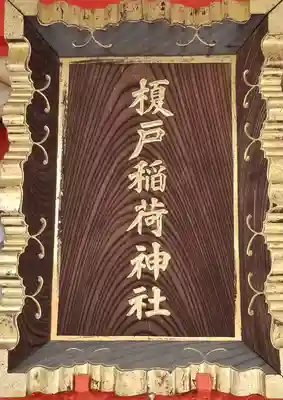 榎戸稲荷神社